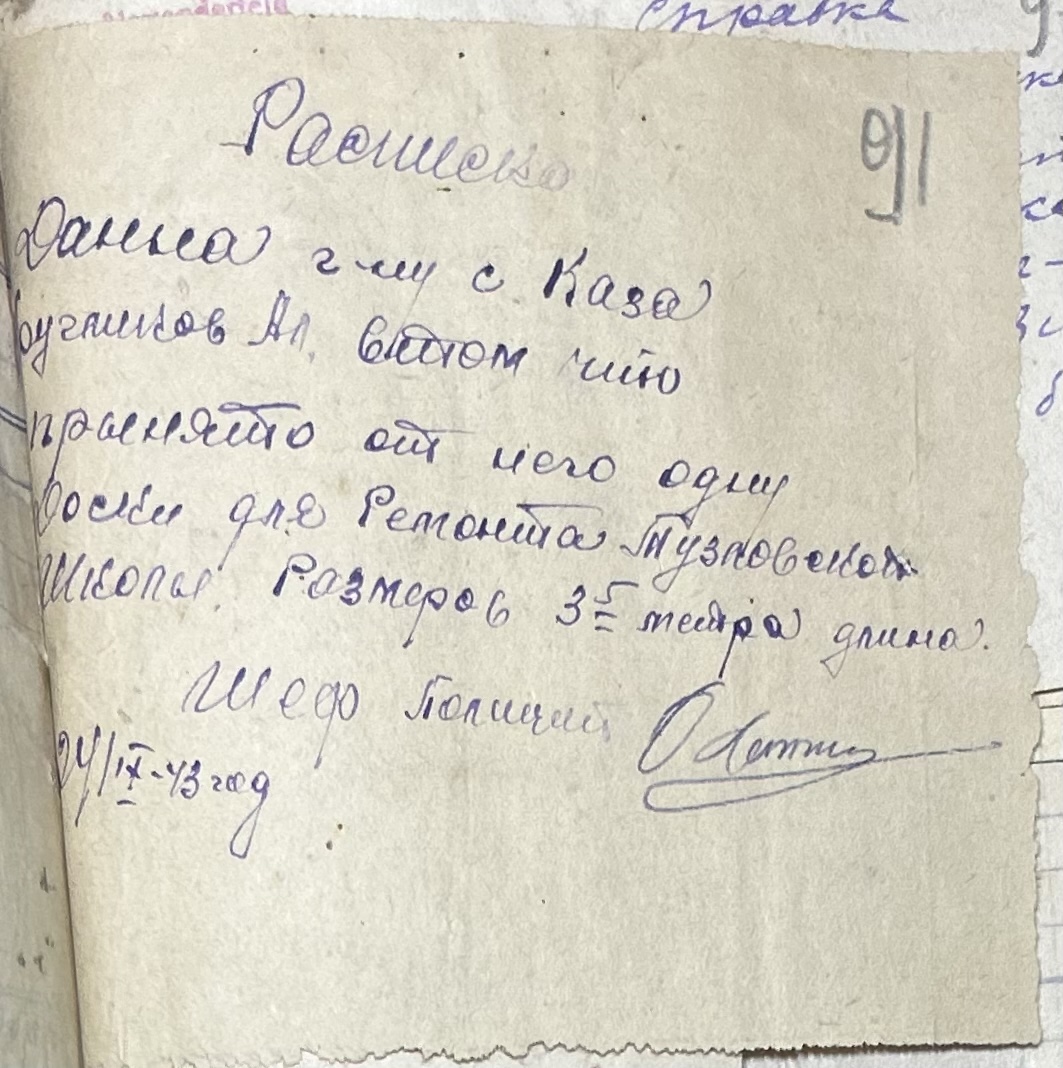 Справка
91
Расписка
Данна г-ну с Каза
бугчиков Ал. вэтом что
прыинято от него одну
Доски для Ремонта Тузловской
Школы Размеров 3 5 метра длина.
Шефо Полиций
24/IX-43 год